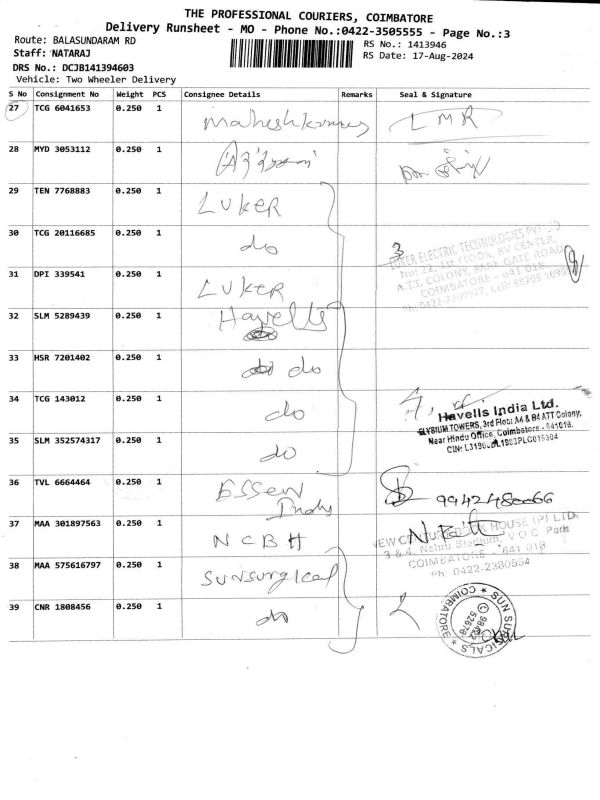 THE PROFESSIONAL COURIERS, COIMBATORE
Delivery Runsheet - MO - Phone No.:0422-3505555 - Page No.:3
Route: BALASUNDARAM RD
RS No.: 1413946
Staff: NATARAJ
RS Date: 17-Aug-2024
DRS No.: DCJB141394603
Vehicle: Two Wheeler Delivery
S No Consignment No Weight PCS Consignee Details Remarks Seal & Signature
27 TCG 6041653 0.250 1 LMR
28 MYD 3053112 0.250 1
29 TEN 7768883 0.250 1 LUKER
30 TCG 20116685 0.250 1 do 3
LUKER ELECTRIC TECHNOLOGIES PVT LTD
No: 22, 1st FLOOR, RV CENTER,
A.T.T. COLONY, PARK GATE ROAD
COIMBATORE - 641 018.
31 DPI 339541 0.250 1 LUKER
32 SLM 5289439 0.250 1 Havells
33 HSR 7201402 0.250 1 do
34 TCG 143012 0.250 1 do
Havells India Ltd.
ELYSIUM TOWERS, 3rd Floor A4 & B4 ATT Colony,
Near Hindu Office, Coimbatore - 641018.
35 SLM 352574317 0.250 1 do
36 TVL 6664464 0.250 1 Essen
37 MAA 301897563 0.250 1 NCBH
NEW CENTURY BOOK HOUSE (P) LTD
3 & 4, Nehru Stadium, V O C Park
COIMBATORE - 641 018
Ph: 0422-2380554
38 MAA 575616797 0.250 1 Sunsurgical
39 CNR 1808456 0.250 1 do
SUN SURGICALS * COIMBATORE *